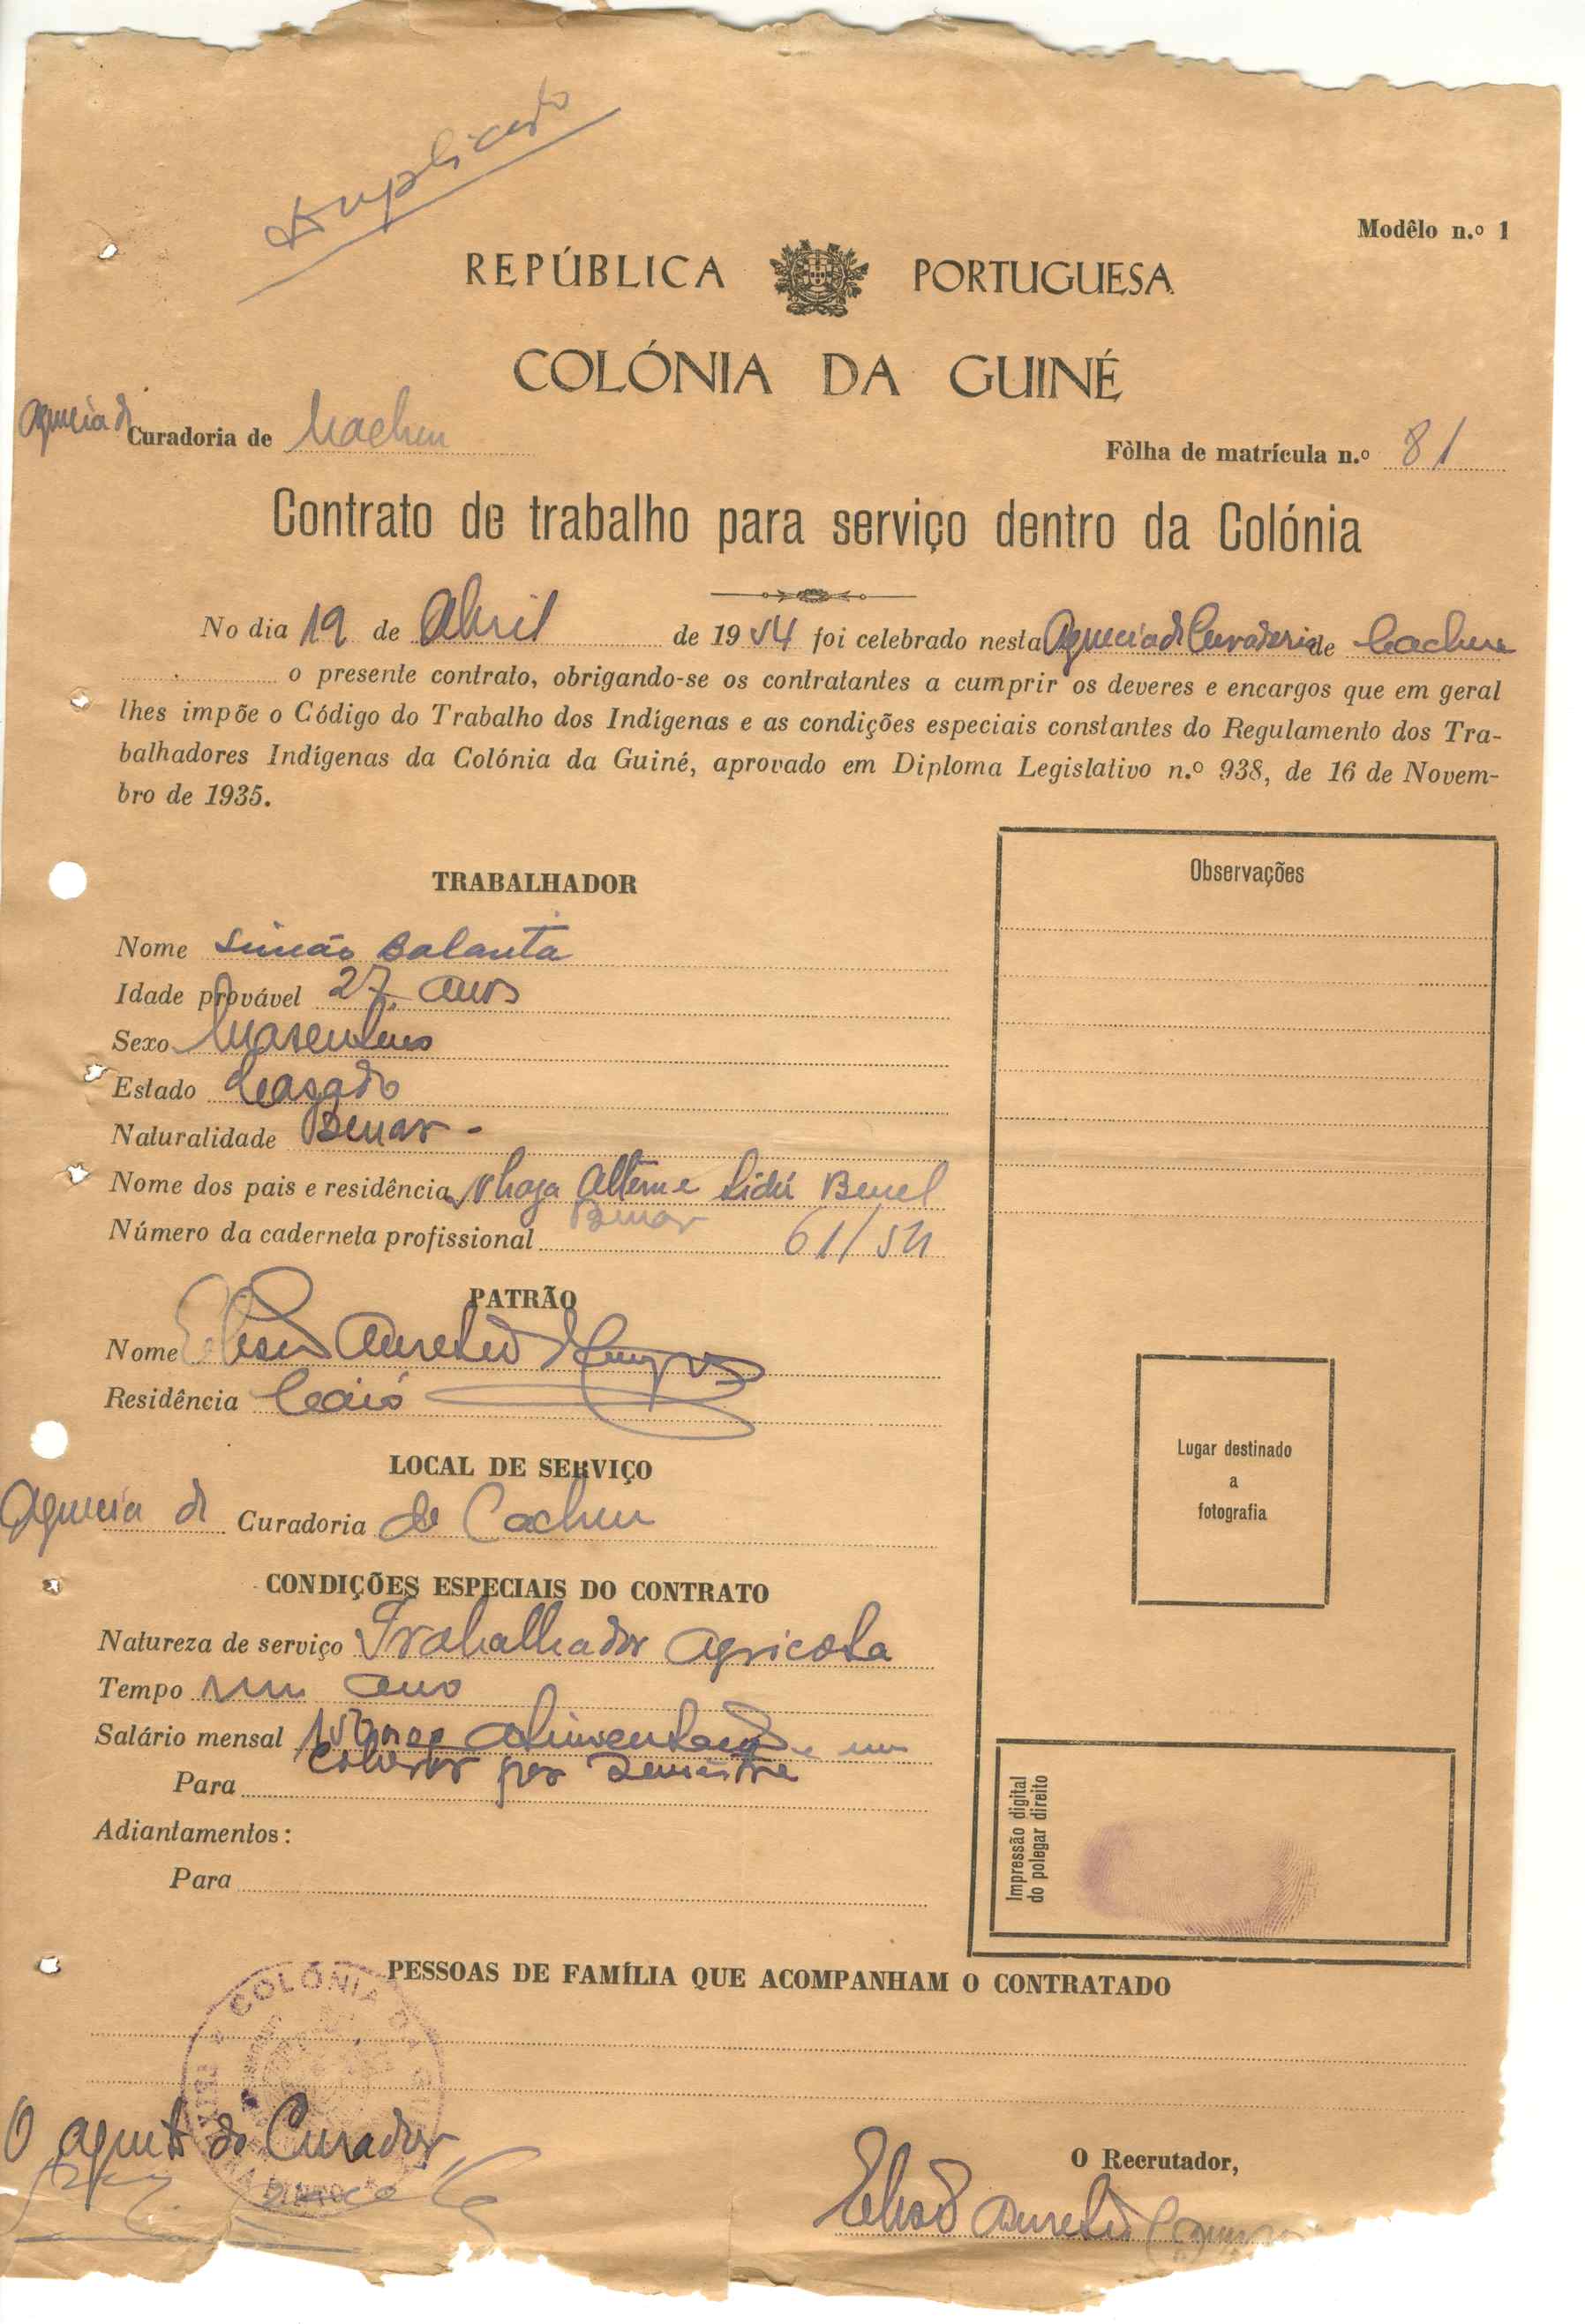 Duplicado
Modêlo n.º 1
REPÚBLICA PORTUGUESA
COLÓNIA DA GUINÉ
Agencia d Curadoria de Cacheu
Fôlha de matrícula n.º 81
Contrato de trabalho para serviço dentro da Colónia
No dia 19 de Abril de 1954 foi celebrado nesta Agencia d Curadoria de Cacheu
o presente contrato, obrigando-se os contratantes a cumprir os deveres e encargos que em geral
lhes impõe o Código do Trabalho dos Indígenas e as condições especiais constantes do Regulamento dos Tra-
balhadores Indígenas da Colónia da Guiné, aprovado em Diploma Legislativo n.º 938, de 16 de Novem-
bro de 1935.
TRABALHADOR
Nome Simão Balanta
Idade provável 27 anos
Sexo Masculino
Estado Casado
Naturalidade Benar -
Nome dos pais e residência
Benar
Número da caderneta profissional 61/54
PATRÃO
Nome Aurelio
Residência Caió
LOCAL DE SERVIÇO
Agencia d Curadoria de Cacheu
CONDIÇÕES ESPECIAIS DO CONTRATO
Natureza de serviço Trabalhador Agricola
Tempo um ano
Salário mensal alimentação e um
cobertor por semestre
Para
Adiantamentos:
Para
Observações
Lugar destinado
a
fotografia
Impressão digital
do polegar direito
PESSOAS DE FAMÍLIA QUE ACOMPANHAM O CONTRATADO
COLÓNIA DA
O agente do Curador,
O Recrutador,
Aurelio